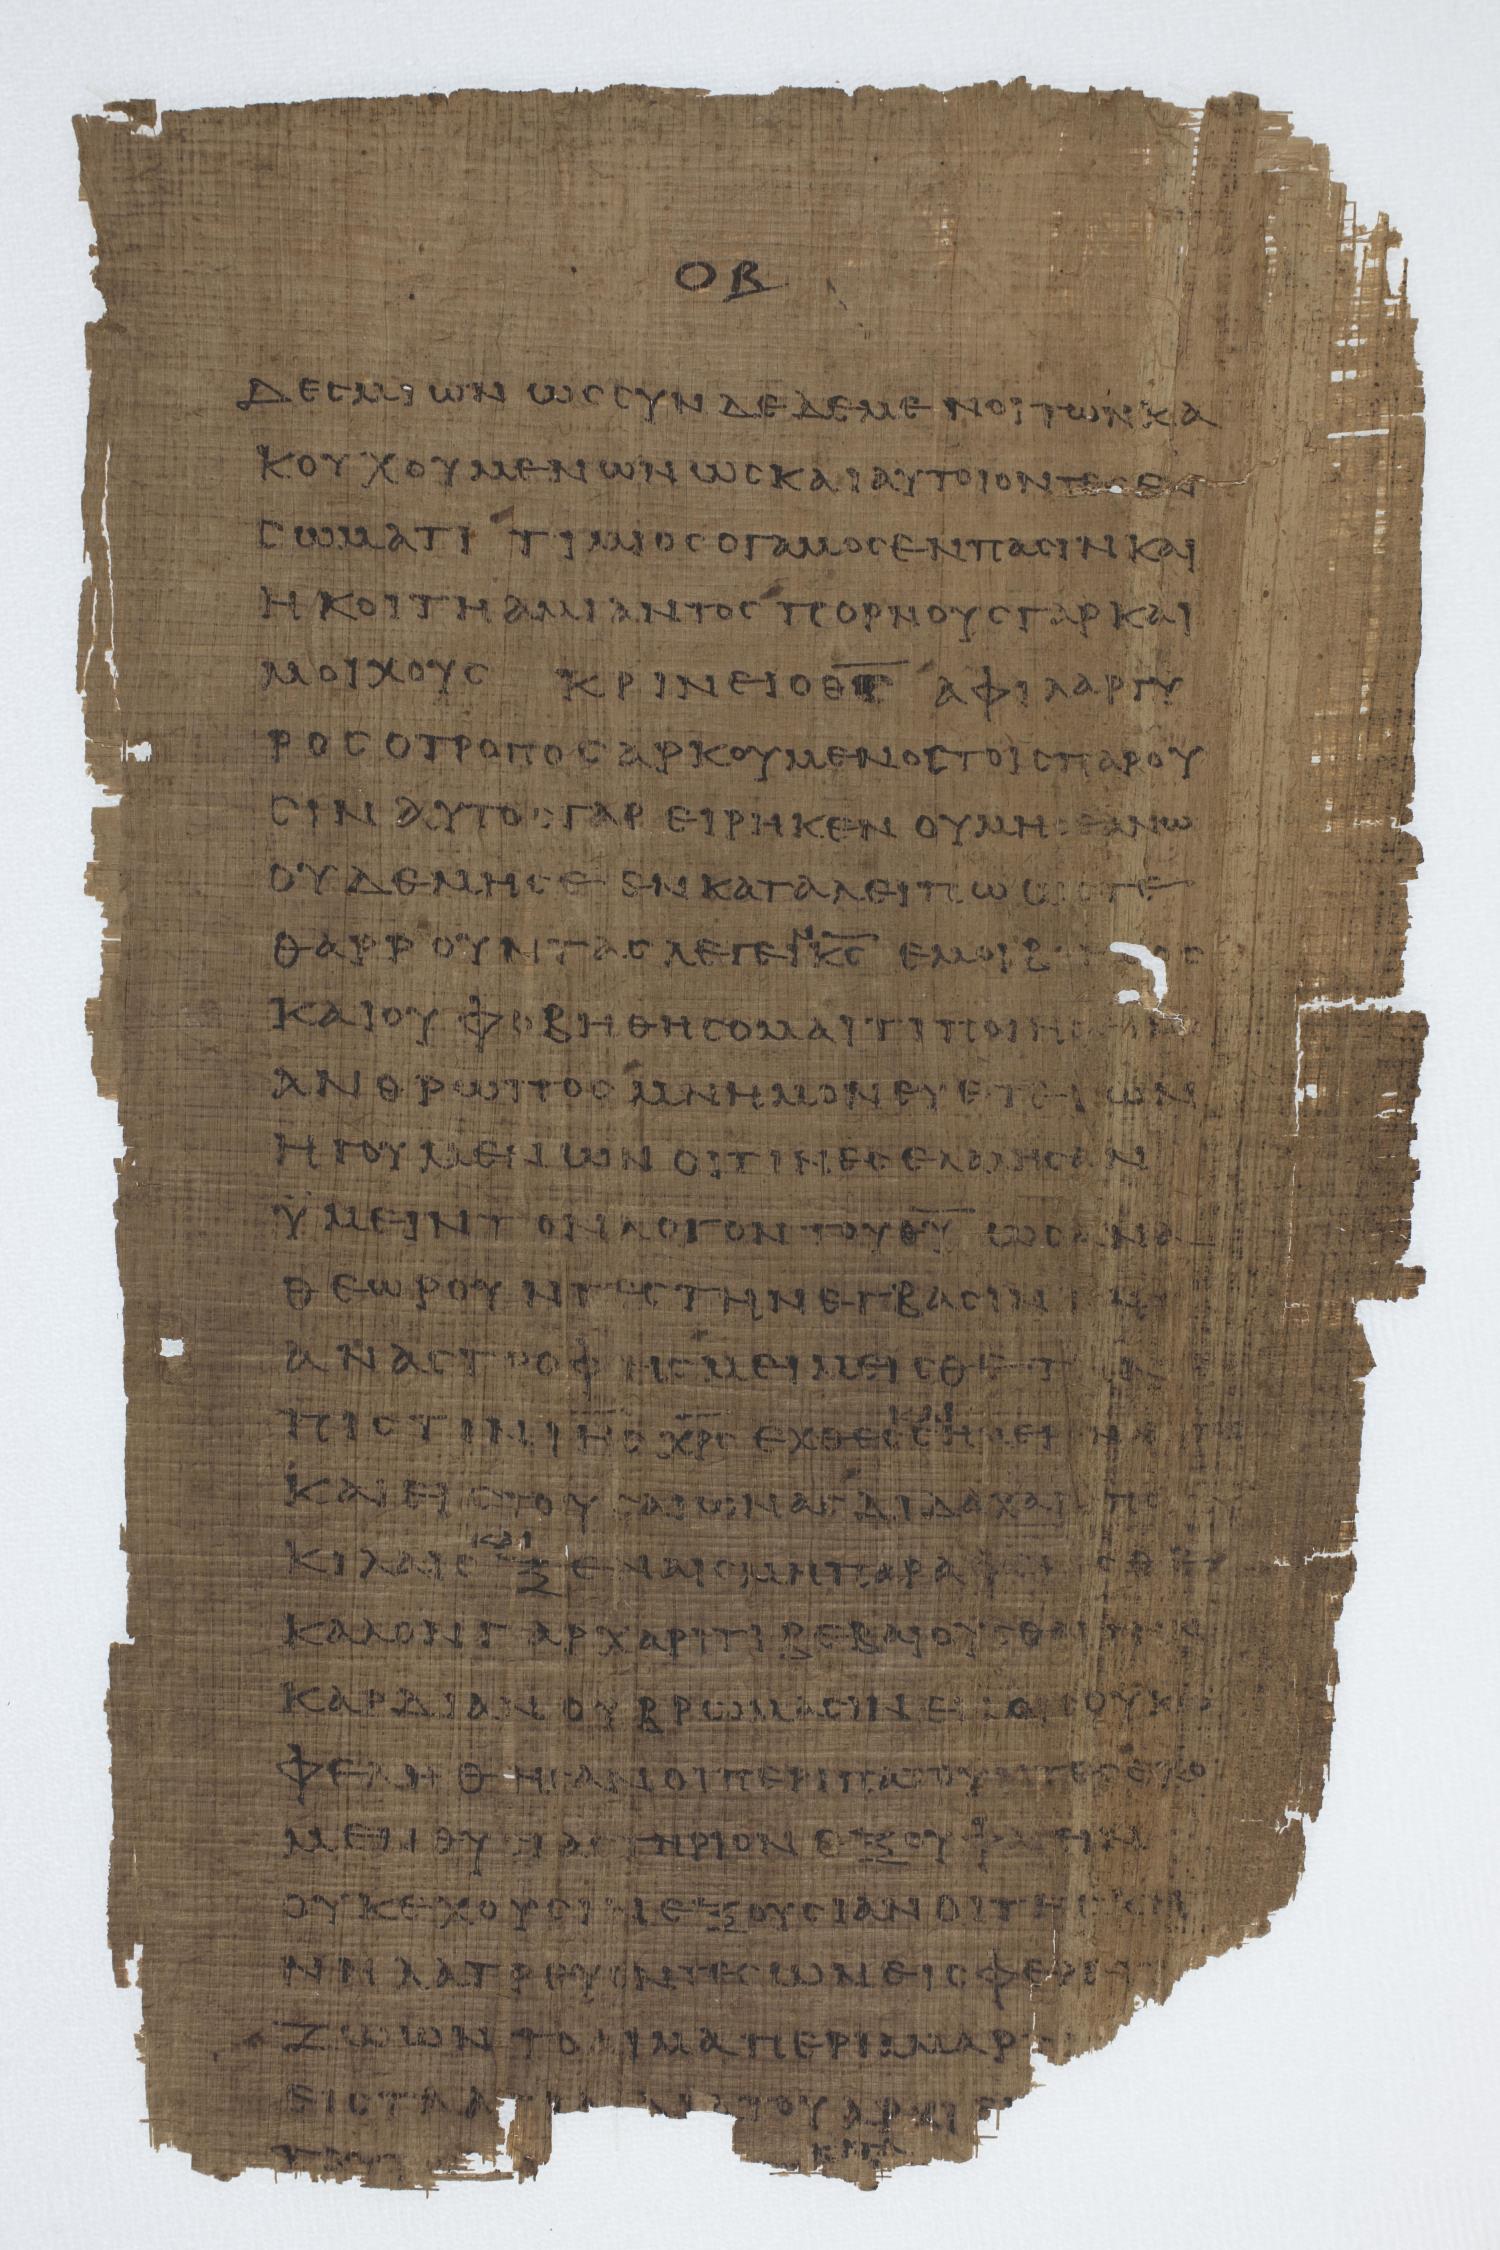 ΟΒ
ΔΕCΜΙωΝ ωCCΥΝΔΕΔΕΜΕΝΟΙΤωΝΚΑ
ΚΟΥΧΟΥΜΕΝωΝωCΚΑΙΑΥΤΟΙΟΝΤΕCΕΝ
CωΜΑΤΙ ΤΙΜΙΟCΟΓΑΜΟCΕΝΠΑCΙΝΚΑΙ
ΗΚΟΙΤΗΑΜΙΑΝΤΟC ΠΟΡΝΟΥCΓΑΡΚΑΙ
ΜΟΙΧΟΥC ΚΡΙΝΕΙΟΘ̅C̅ ΑΦΙΛΑΡΓΥ
ΡΟCΟΤΡΟΠΟCΑΡΚΟΥΜΕΝΟCΤΟΙCΠΑΡΟΥ
CΙΝ ΑΥΤΟCΓΑΡ ΕΙΡΗΚΕΝ ΟΥΜΗCΕΑΝω
ΟΥΔΕΜΗCΕ ΕΝΚΑΤΑΛΕΙΠω ωCΤΕ
ΘΑΡΡΟΥΝΤΑCΛΕΓΕΙΝΚ̅C̅ ΕΜΟΙΒ
ΚΑΙΟΥ ΦΟΒΗΘΗCΟΜΑΙΤΙΠΟΙΗC
ΑΝΘΡωΠΟC ΜΝΗΜΟΝΕΥΕΤΕΤωΝ
ΗΓΟΥΜΕΝωΝ ΟΙΤΙΝΕCΕΛΑΛΗCΑΝ
ΫΜΕΙΝΤΟΝΛΟΓΟΝΤΟΥΘ̅Υ̅ ωΝΑΝΑ
ΘΕωΡΟΥΝΤΕCΤΗΝΕΓΒΑCΙΝ ΤΗC
ΑΝΑCΤΡΟΦΗCΜΕΙΜΕΙCΘΕΤΗΝ
ΠΙCΤΙΝ Ι̅Η̅C̅ Χ̅Ρ̅C̅ ΕΧΘΕCΚΑΙCΗΜΕΡ
ΚΑΙΕΙCΤΟΥCΑΙωΝΑC ΔΙΔΑΧΑΙCΠΟΙ
ΚΙΛΑΙC ΚΑΙ ΞΕΝΑΙCΜΗΠΑΡΑΦΕΡΕCΘΕ
ΚΑΛΟΝΓΑΡΧΑΡΙΤΙΒΕΒΑΙΟΥCΘΑΙΤΗΝ
ΚΑΡΔΙΑΝΟΥΒΡωΜΑCΙΝΕΝΟΙCΟΥΚω
ΦΕΛΗΘΗCΑΝΟΙΠΕΡΙΠΑΤΟΥΝΤΕCΕΧΟ
ΜΕΝΘΥCΙΑCΤΗΡΙΟΝΕΞΟΥΦΑΓΕΙΝ
ΟΥΚΕΧΟΥCΙΝΕΞΟΥCΙΑΝΟΙΤΗCΚΗ
ΝΗΛΑΤΡΕΥΟΝΤΕCωΝΕΙCΦΕΡΕΤ
ΖωωΝΤΟΑΙΜΑΠΕΡΙΑΜΑΡ
ΕΙCΤΑΑΓΙΑ ΔΙΑΤΟΥΑΡΧΙΕ